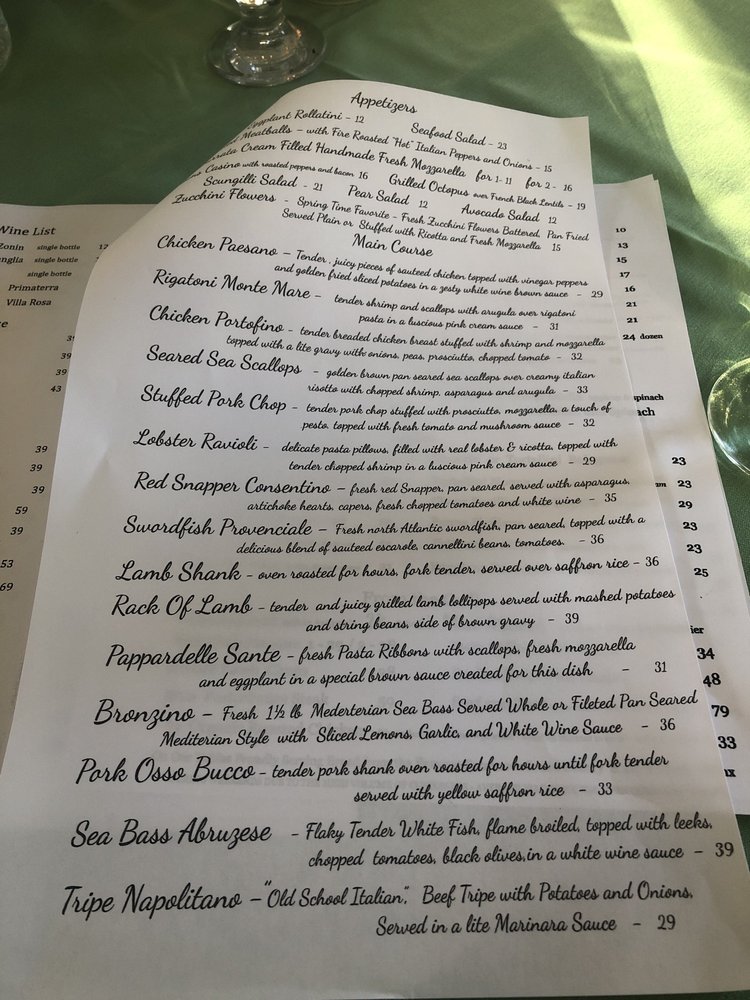 Appetizers
Eggplant Rollatini - 12 Seafood Salad - 23
Meatballs - with Fire Roasted "Hot" Italian Peppers and Onions - 15
Cream Filled Handmade Fresh Mozzarella for 1- 11 for 2 - 16
Casino with roasted peppers and bacon 16 Grilled Octopus over French Black Lentils - 19
Scungilli Salad - 21 Pear Salad 12 Avocado Salad 12
Zucchini Flowers - Spring Time Favorite - Fresh Zucchini Flowers Battered, Pan Fried
Served Plain or Stuffed with Ricotta and Fresh Mozzarella 15
Main Course
Chicken Paesano - Tender, juicy pieces of sauteed chicken topped with vinegar peppers
and golden fried sliced potatoes in a zesty white wine brown sauce - 29
Rigatoni Monte Mare - tender shrimp and scallops with arugula over rigatoni
pasta in a luscious pink cream sauce - 31
Chicken Portofino - tender breaded chicken breast stuffed with shrimp and mozzarella
topped with a lite gravy with onions, peas, prosciutto, chopped tomato - 32
Seared Sea Scallops - golden brown pan seared sea scallops over creamy italian
risotto with chopped shrimp, asparagus and arugula - 33
Stuffed Pork Chop - tender pork chop stuffed with prosciutto, mozzarella, a touch of
pesto, topped with fresh tomato and mushroom sauce - 32
Lobster Ravioli - delicate pasta pillows, filled with real lobster & ricotta, topped with
tender chopped shrimp in a luscious pink cream sauce - 29
Red Snapper Consentino - fresh red Snapper, pan seared, served with asparagus,
artichoke hearts, capers, fresh chopped tomatoes and white wine - 35
Swordfish Provenciale - Fresh north Atlantic swordfish, pan seared, topped with a
delicious blend of sauteed escarole, cannellini beans, tomatoes. - 36
Lamb Shank - oven roasted for hours, fork tender, served over saffron rice - 36
Rack Of Lamb - tender and juicy grilled lamb lollipops served with mashed potatoes
and string beans, side of brown gravy - 39
Pappardelle Sante - fresh Pasta Ribbons with scallops, fresh mozzarella
and eggplant in a special brown sauce created for this dish - 31
Bronzino - Fresh 1½ lb Mederterian Sea Bass Served Whole or Fileted Pan Seared
Mediterian Style with Sliced Lemons, Garlic, and White Wine Sauce - 36
Pork Osso Bucco - tender pork shank oven roasted for hours until fork tender
served with yellow saffron rice - 33
Sea Bass Abruzese - Flaky Tender White Fish, flame broiled, topped with leeks,
chopped tomatoes, black olives, in a white wine sauce - 39
Tripe Napolitano - "Old School Italian", Beef Tripe with Potatoes and Onions,
Served in a lite Marinara Sauce - 29
Wine List
Zonin single bottle 12
single bottle
single bottle
Primaterra
Villa Rosa
39
39
39
43
39
39
39
59
39
53
69
10
13
15
17
16
21
21
24 dozen
spinach
23
23
29
23
23
25
34
48
79
33